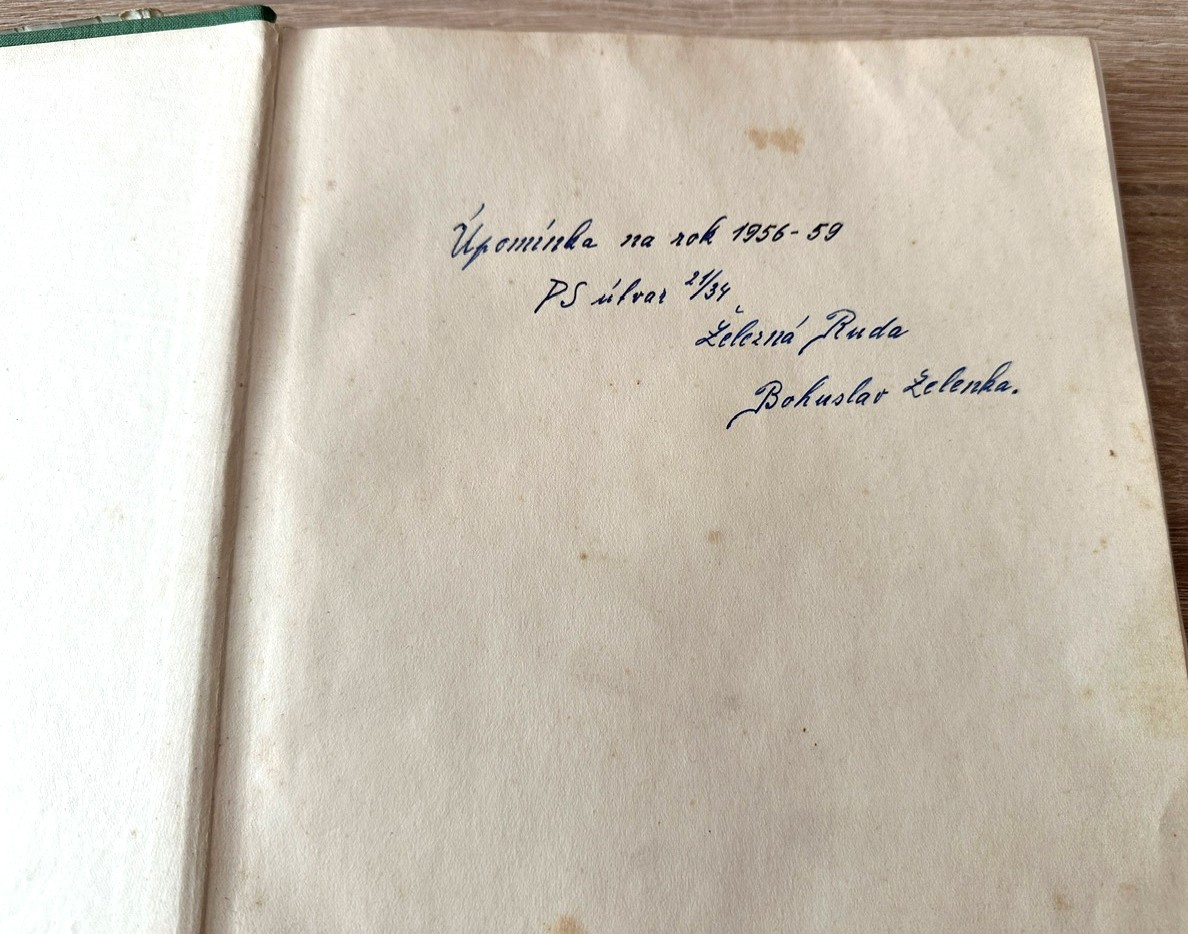 Úpomínka na rok 1956-59
PS útvar 21/34
Železná Ruda
Bohuslav Zelenka.